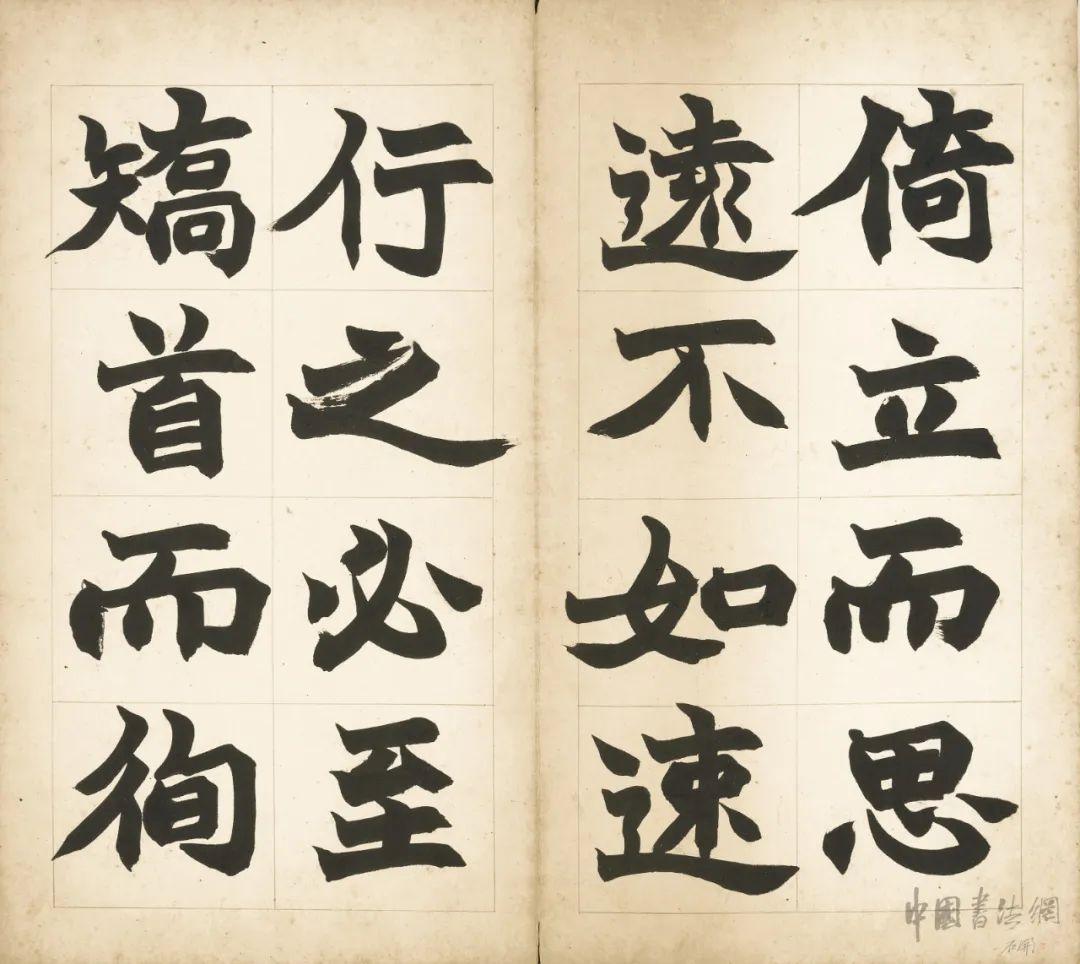 倚立而思
遠不如速
行之必至
矯首而徇
中國書法網